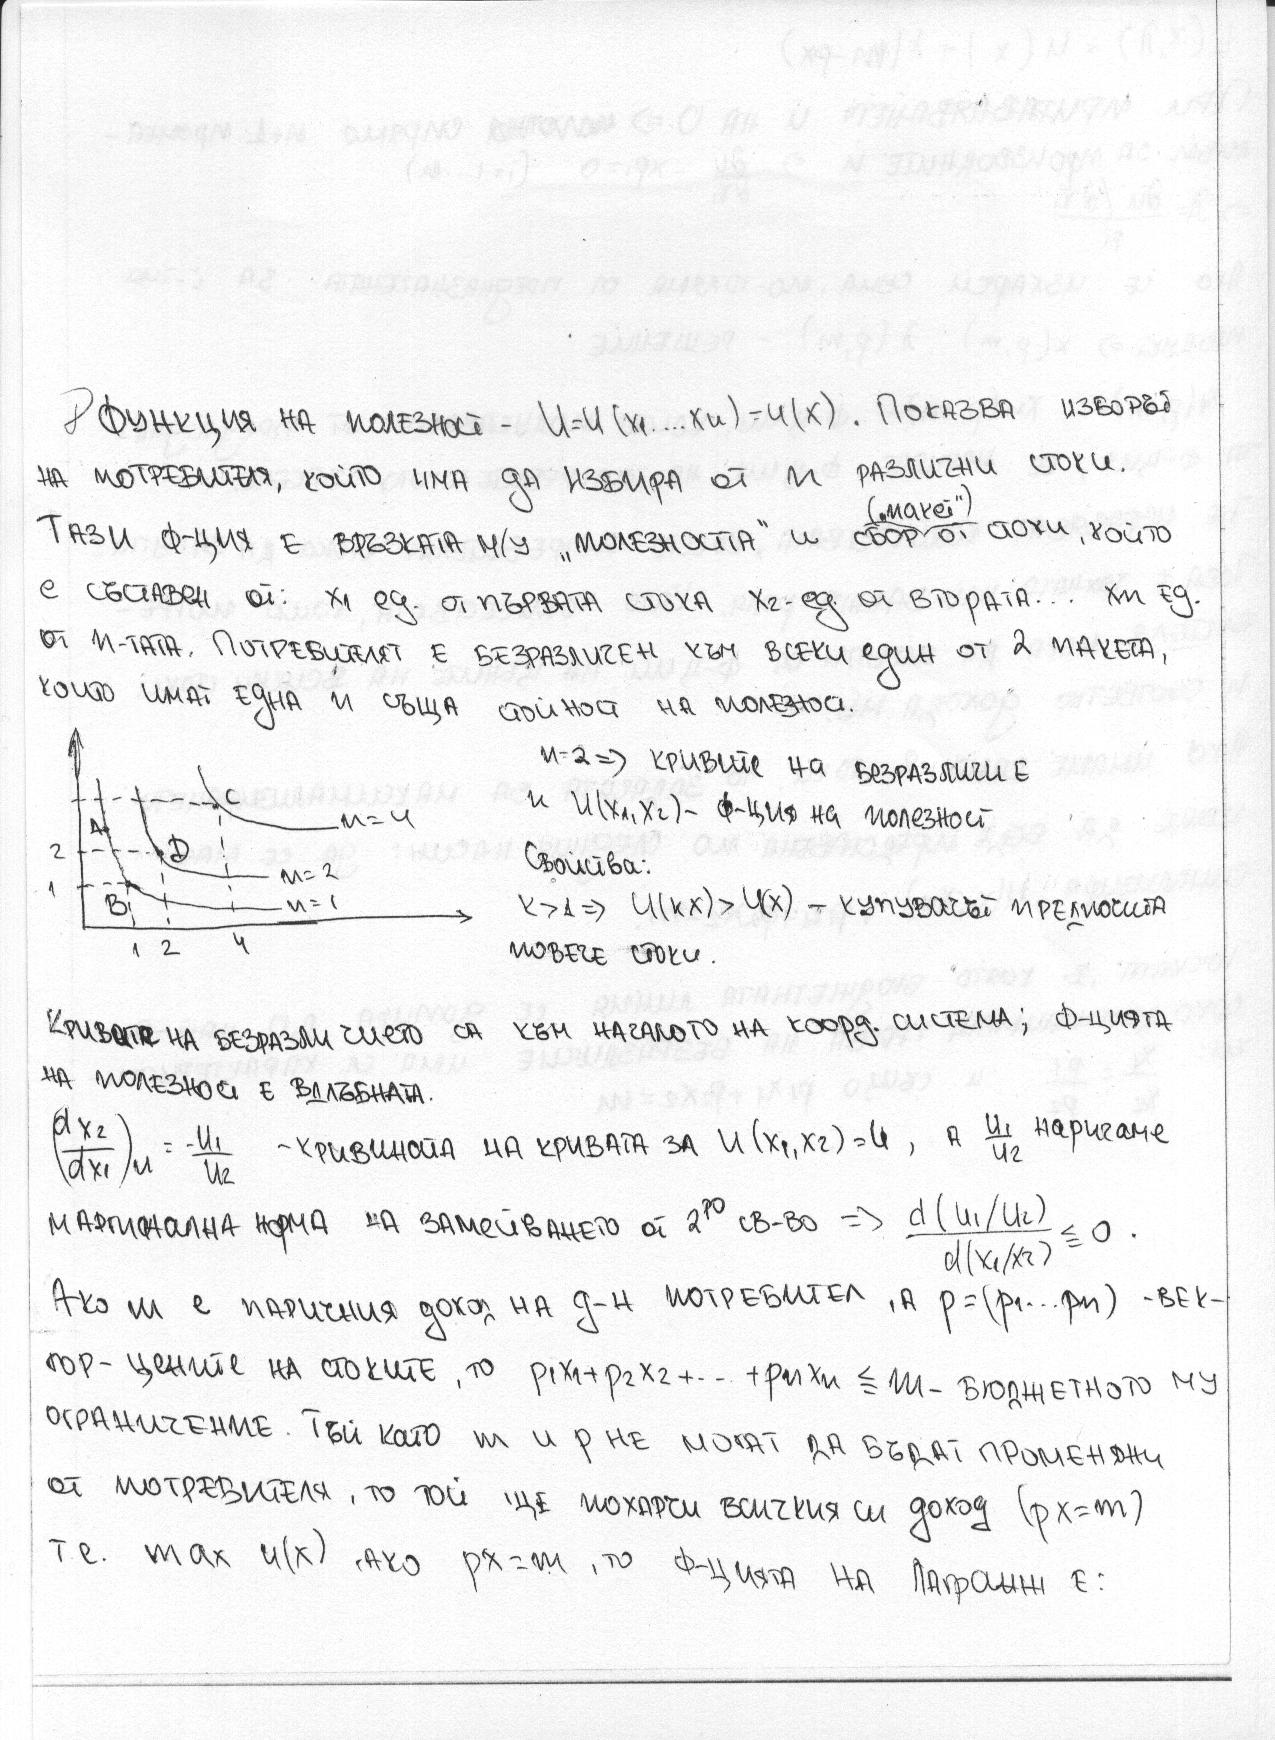 Функция на полезност - U=U(x1....xn)=U(x). Показва изборът
на потребителя, който има да избира от n различни стоки.
("пакет")
Тази ф-ция е връзката м/у „полезността" и сбор от стоки, който
е съставен от: x1 ед. от първата стока x2-ед от втората... xn ед.
от n-тата. Потребителят е безразличен към всеки един от 2 пакета,
които имат една и съща стойност на полезност.
n=2 => кривите на безразличие
и U(x1,x2)- ф-ция на полезност
C
A
u=4
2
D
u=2
1
B
u=1
1 2 4
Свойства:
k>1=> U(kx)>U(x) - купувачът предпочита
повече стоки.
Кривите на безразличието са към началото на коорд. система; ф-цията
на полезност е вдлъбната.
(dx2/dx1)u = -U1/U2 -кривината на кривата за U(x1,x2)=U, а U1/U2 наричаме
маргинална норма на заместването от 2ро св-во => d(U1/U2)/d(x1/x2) ≤ 0.
Ако m е паричния доход на д-н потребител, а p=(p1...pn) -век-
тор-цените на стоките, то p1x1+p2x2+... +pnxn ≤ m- бюджетното му
ограничение. Тъй като m и p не могат да бъдат променяни
от потребителя, то той ще похарчи всичкия си доход (px=m)
т.е. max u(x), ако px=m, то ф-цията на Лагранж е: